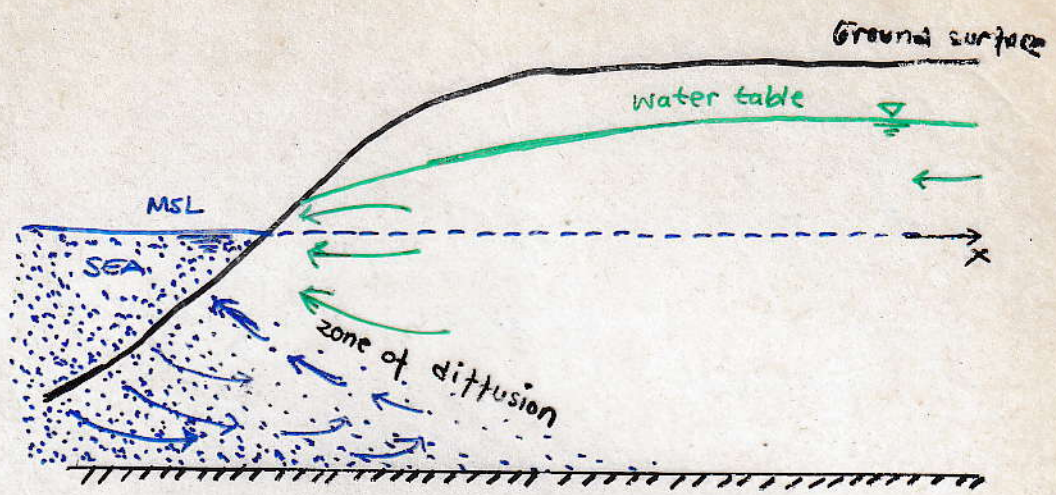 Ground surface
water table
MSL
SEA
X
zone of diffusion